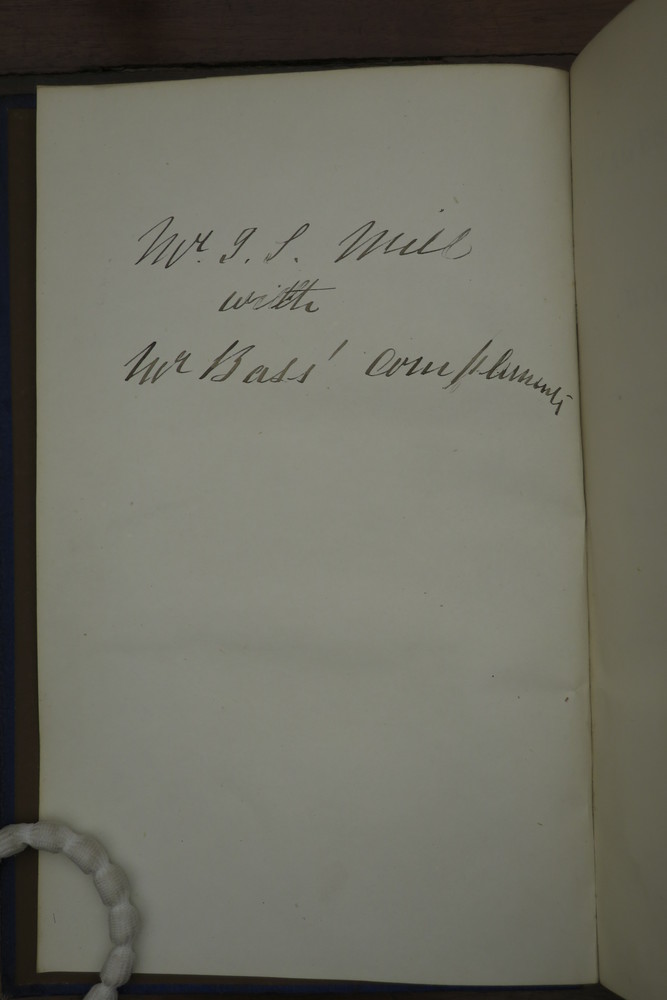 Mr. J. S. Mill
with
Mr Bass' compliments